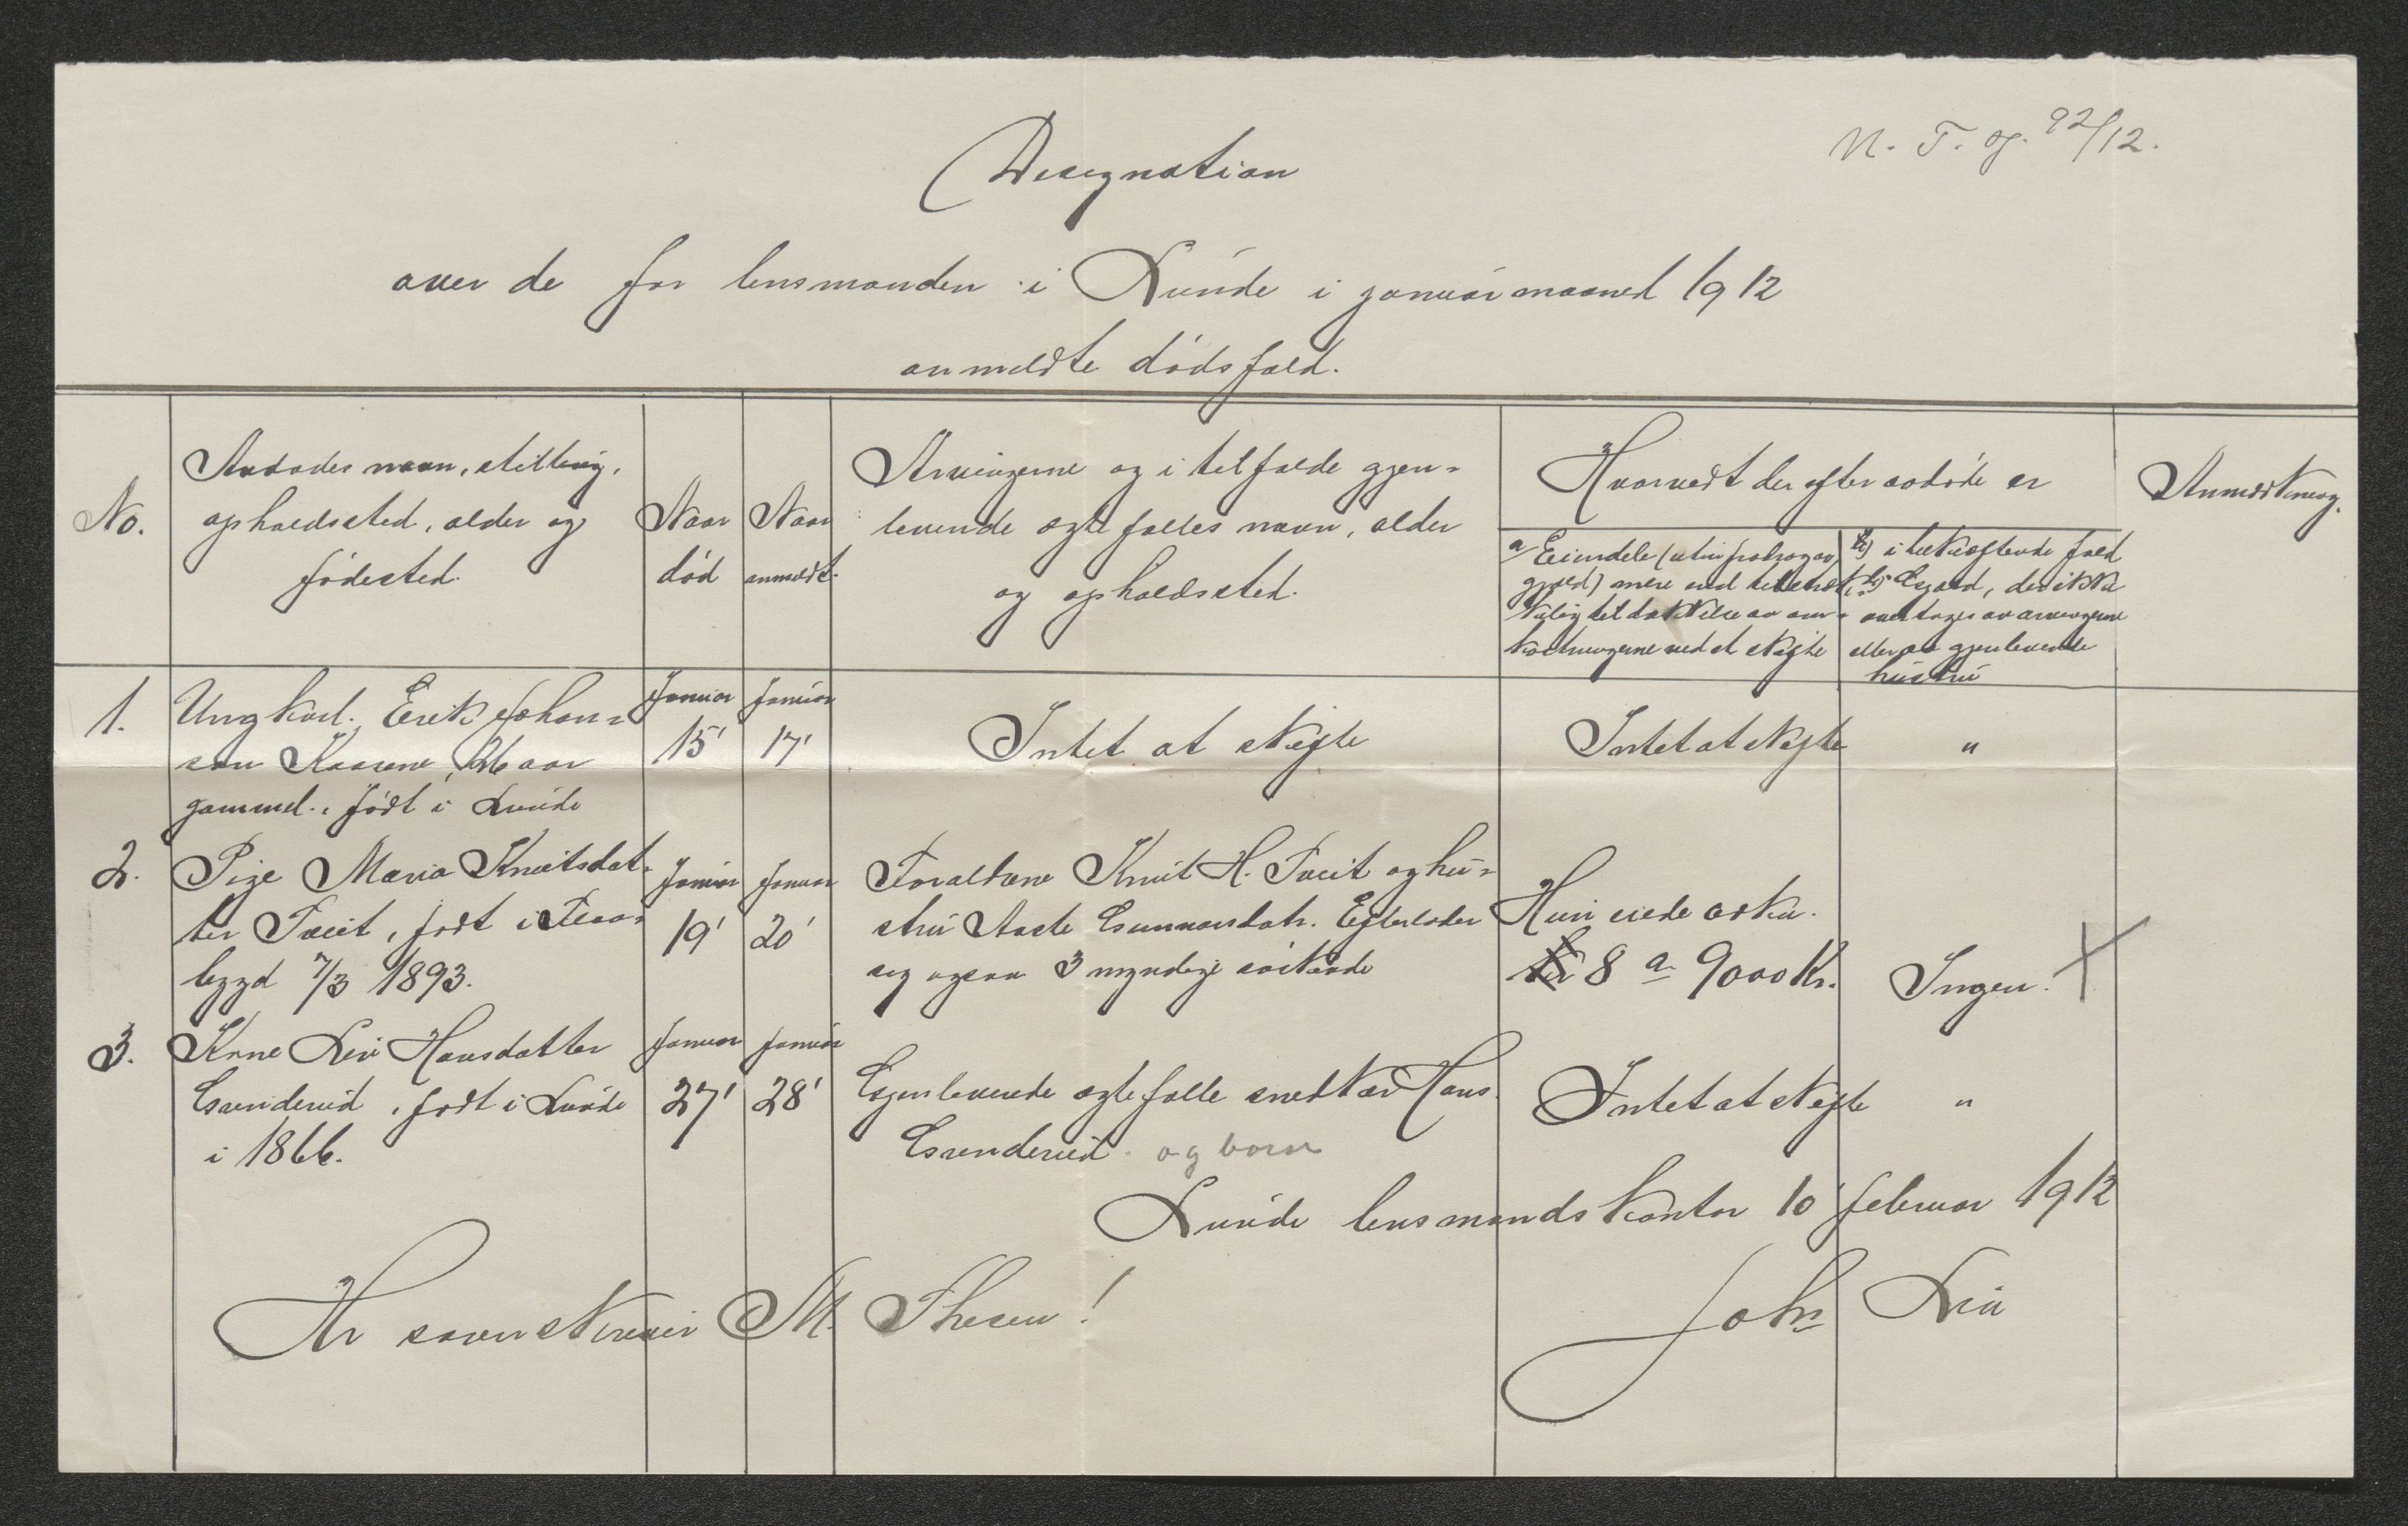 N. T. og. 92/12.
Designation
over de for lensmanden i Lunde i januar maaned 1912
anmeldte dødsfald.
No.
Avdødes navn, stilling,
opholdssted, alder og
fødested.
Naar
død
Naar
anmeldt.
Arvingerne og i tilfælde gjen-
levende ægtefælles navn, alder
og opholdssted.
Hvorvidt der efter avdøde er
a) Eiendele (uten fradrag av
gjæld) mere end tilstræk-
kelig til dækkelse av om-
kostningerne ved et skifte
b) i bekræftende fald
Gjæld, der ikke
overtages av arvingerne
eller av gjenlevende
hustru
Anmerkning.
1.
Ungkarl Erik Johan-
sen Kaasene, 26 aar
gammel, født i Lunde
Januar
15'
Januar
17'
Intet at skifte
Intet at skifte
"
2.
Pige Maria Knutsdat-
ter Tveit, født i Flaa-
bygd 7/3 1893.
Januar
19'
Januar
20'
Forældrene Knut H. Tveit og hu-
stru Aaste Gunnarsdatr. Efterlader
seg ogsaa 3 myndige søskende
Hun eiede ca.
8 a 9000 Kr.
Ingen.
3.
Kone Liv Hansdatter
Grenderud, født i Lunde
i 1866.
Januar
27'
Januar
28'
Gjenlevende ægtefælle snedker Hans
Grenderud og børn
Intet at skifte
"
Lunde lensmandskontor 10' februar 1912
John Lia
Hr sorenskriver M. Thesen!